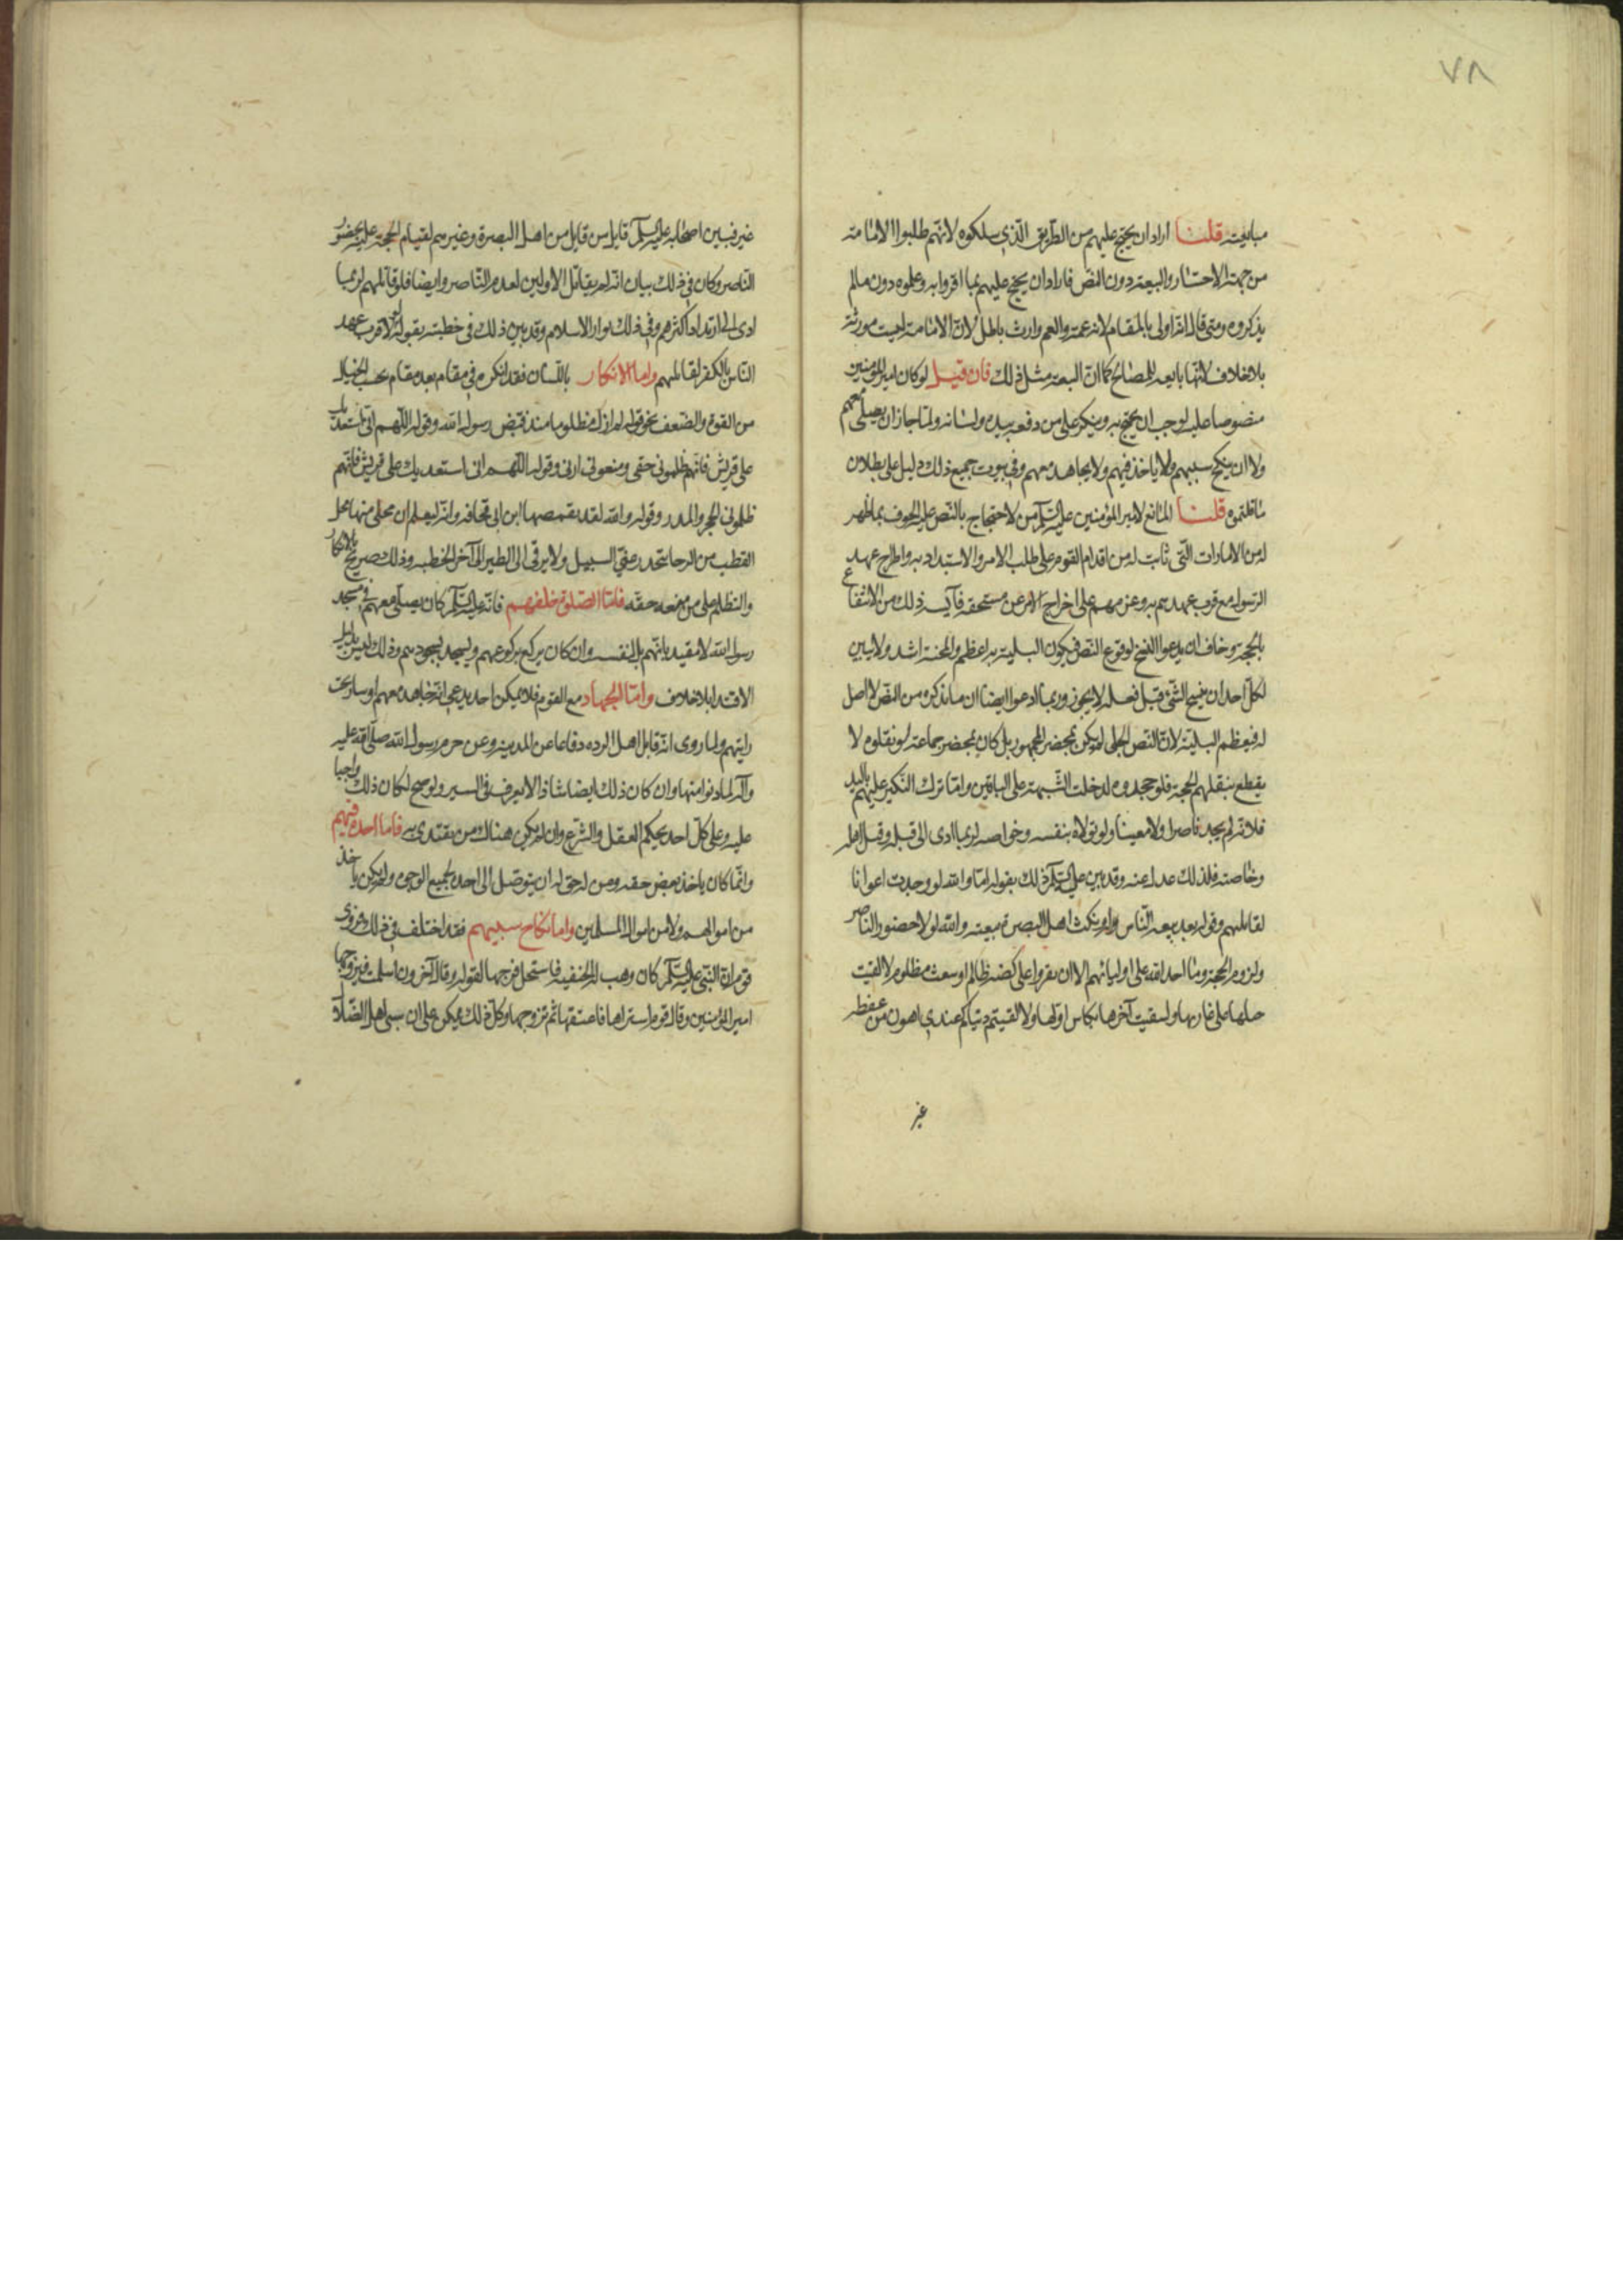 ٧٨
مبايعته قلنا اراد ان يحتج عليهم من الطريق الذي سلكوه لانهم طلبوا الامامة
من جهة الاختيار والبيعة دون النص فاراد ان يحتج عليهم بما اقروا به وعلموه دون مالم
يذكروه ومتى قال انه اولى بالمقام لانه عمه والعم وارث باطل لان الامامة ليست موروثة
بلا خلاف لانها تابعه للمصالح كما ان البيعة مثل ذلك فان قيل لو كان امير المؤمنين
منصوصا عليه لوجب ان يحتج به وينكر على من دفعه بيده ولسانه ولما جاز ان يصلى معهم
ولا ان ينكح سبيهم ولا ياخذ فيهم ولا يجاهد معهم وفي ثبوت جميع ذلك دليل على بطلان
ما قلتموه قلنا المانع لامير المؤمنين عليه السلم من الاحتجاج بالنص عليه الخوف بما ظهر
له من الامارات التى ثابت له من اقدام القوم على طلب الامر والاستبداد به واطراح عهد
الرسول مع قرب عهدهم به وعزمهم على اخراج الامر عن مستحقه فآيسه ذلك من الانتفاع
بالحجة وخاف ان يدعوا النسخ لوقوع النص فيكون البلية به اعظم والمحنة اشد ولا يبين
لكل احد ان نسخ الشئ قبل فعله لا يجوز وربما ادعوا ايضا ان ما نذكره من النص لا اصل
له فيعظم البلية لان النص الجلى لم يكن بمحضر الجمهور بل كان بمحضر جماعة لو نقلوه لا
يقطع بنقلهم الحجة فلو جحدوه لدخلت الشبهة على الباقين واما ترك النكير عليهم باليد
فلانه لم يجد ناصرا ولا معينا ولو تولاه بنفسه وخواصه لربما ادى الى قتله وقتل اهله
وخاصته فلذلك عدل عنه وقد بين عليه السلم ذلك بقوله اما والله لو وجدت اعوانا
لقاتلتهم وقوله بعد بيعه الناس له ونكث اهل البصرة بيعته والله لولا حضور الناصر
ولزوم الحجة وما اخذ الله على اوليائهم الا ان يقروا على كضه ظالم او سغب مظلوم لالقيت
حبلها على غاربها ولسقيت آخرها بكاس اولها ولالفيتم دنياكم عندي اهون من عفطه
غير
غير فبين اصحابه عليه السلم قاتل من قاتل من اهل البصرة وغيرهم لقيام الحجة عليه بحضور
الناصر وكان في ذلك بيان انه لم يقاتل الاولين لعدم الناصر وايضا فلو قاتلهم لربما
ادى الى ارتداد اكثرهم وفي ذلك بوار الاسلام وقد بين ذلك في خطبته بقوله لولا قرب عهد
الناس بالكفر لقاتلتهم واما الانكار باللسان فقد انكره في مقام بعد مقام بحسب الحال
من القوة والضعف نحو قوله لم ازل مظلوما منذ قبض رسول الله وقوله اللهم انى استعديك
على قريش فانهم ظلمونى حقى ومنعونى ارثى وقوله اللهم انى استعديك على قريش فانهم
ظلمونى الحجر والمدر وقوله والله لقد تقمصها ابن ابى قحافه وانه ليعلم ان محلى منها محل
القطب من الرحا ينحدر عنى السيل ولا يرقى الى الطير الى آخر الخطبه وذلك صريح بالانكار
والتظلم على من منعه حقه فاما الصلوة خلفهم فانه عليه السلم كان يصلى معهم في مسجد
رسول الله لا مقتديا بهم بل لنفسه وان كان يركع بركوعهم ويسجد بسجودهم وذلك ليس بدليل
الاقتداء بلا خلاف واما الجهاد مع القوم فلا يمكن احد يدعى انه جاهد معهم او سار تحت
رايتهم ولما روى انه قاتل اهل الرده دفاعا عن المدينه وعن حرم رسول الله صلى الله عليه
وآله لما دنوا منها وان كان ذلك ايضا شاذا لا يعرف في السير ولو صح لكان ذلك واجبا
عليه وعلى كل احد بحكم العقل والشرع وان لم يكن هناك من يقتدى به فاما اخذه فيهم
وانما كان ياخذ بعض حقه ومن له حق له ان يتوصل الى اخذه بجميع الوجوه ولم يكن ياخذ
من اموالهم ولا من اموال المسلمين واما نكاح سبيهم فقد اختلف في ذلك فروى
قوم ان النبى عليه السلم كان وهب له الحنفيه فاستحل فرجها لقوله وقال آخرون اسلمت فتزوجها
امير المؤمنين وقال قوم اشتراها فاعتقها ثم تزوجها وكل ذلك يمكن على ان سبى اهل الضلال